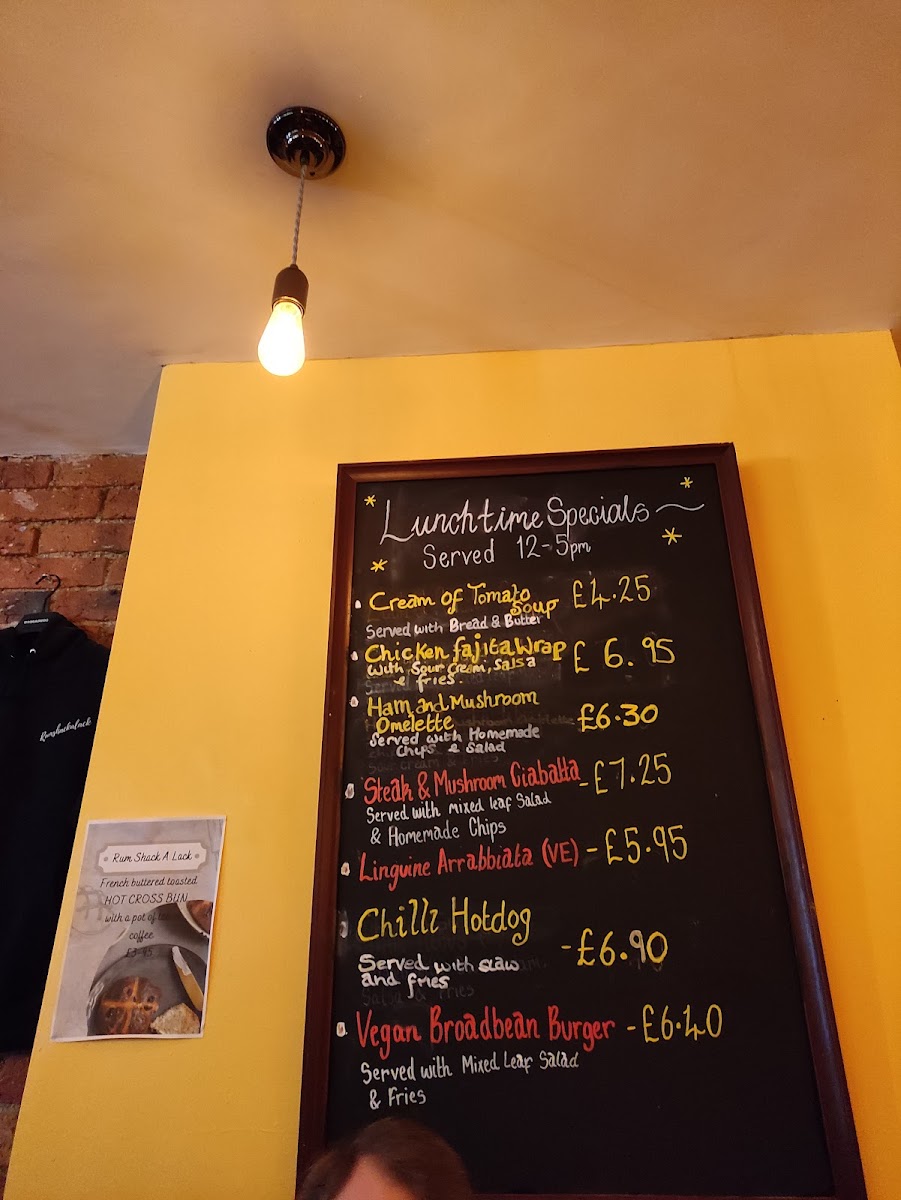 Lunchtime Specials
Served 12-5pm
Cream of Tomato
Soup £4.25
Served with Bread & Butter
Chicken fajita Wrap
with Sour Cream, Salsa £6.95
& fries.
Ham and Mushroom
Omelette £6.30
Served with Homemade
Chips & Salad
Steak & Mushroom Ciabatta -£7.25
Served with mixed leaf Salad
& Homemade Chips
Linguine Arrabbiata (VE) -£5.95
Chilli Hotdog
-£6.90
Served with slaw
and fries
Vegan Broadbean Burger -£6.40
Served with Mixed Leaf Salad
& Fries
Rumshackalack
Rum Shack A Lack
French buttered toasted
HOT CROSS BUN
with a pot of
coffee